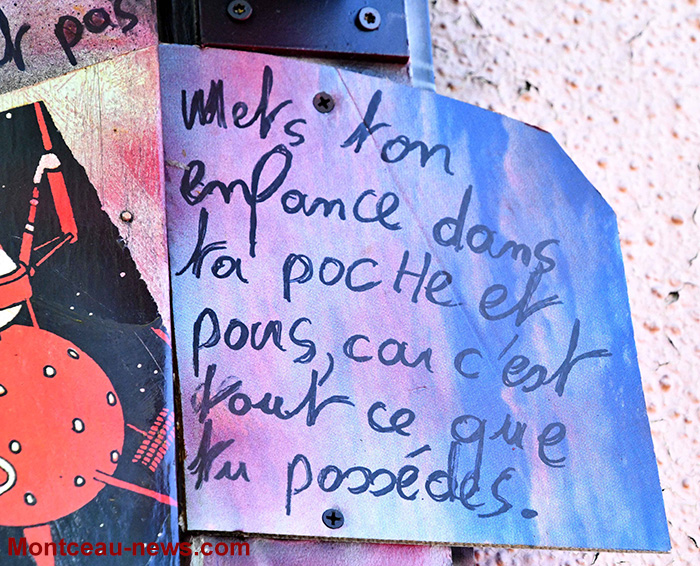 r pas
Mets ton
enfance dans
ta pocHe et
pars, car c'est
tout ce que
tu possédes.
Montceau-news.com